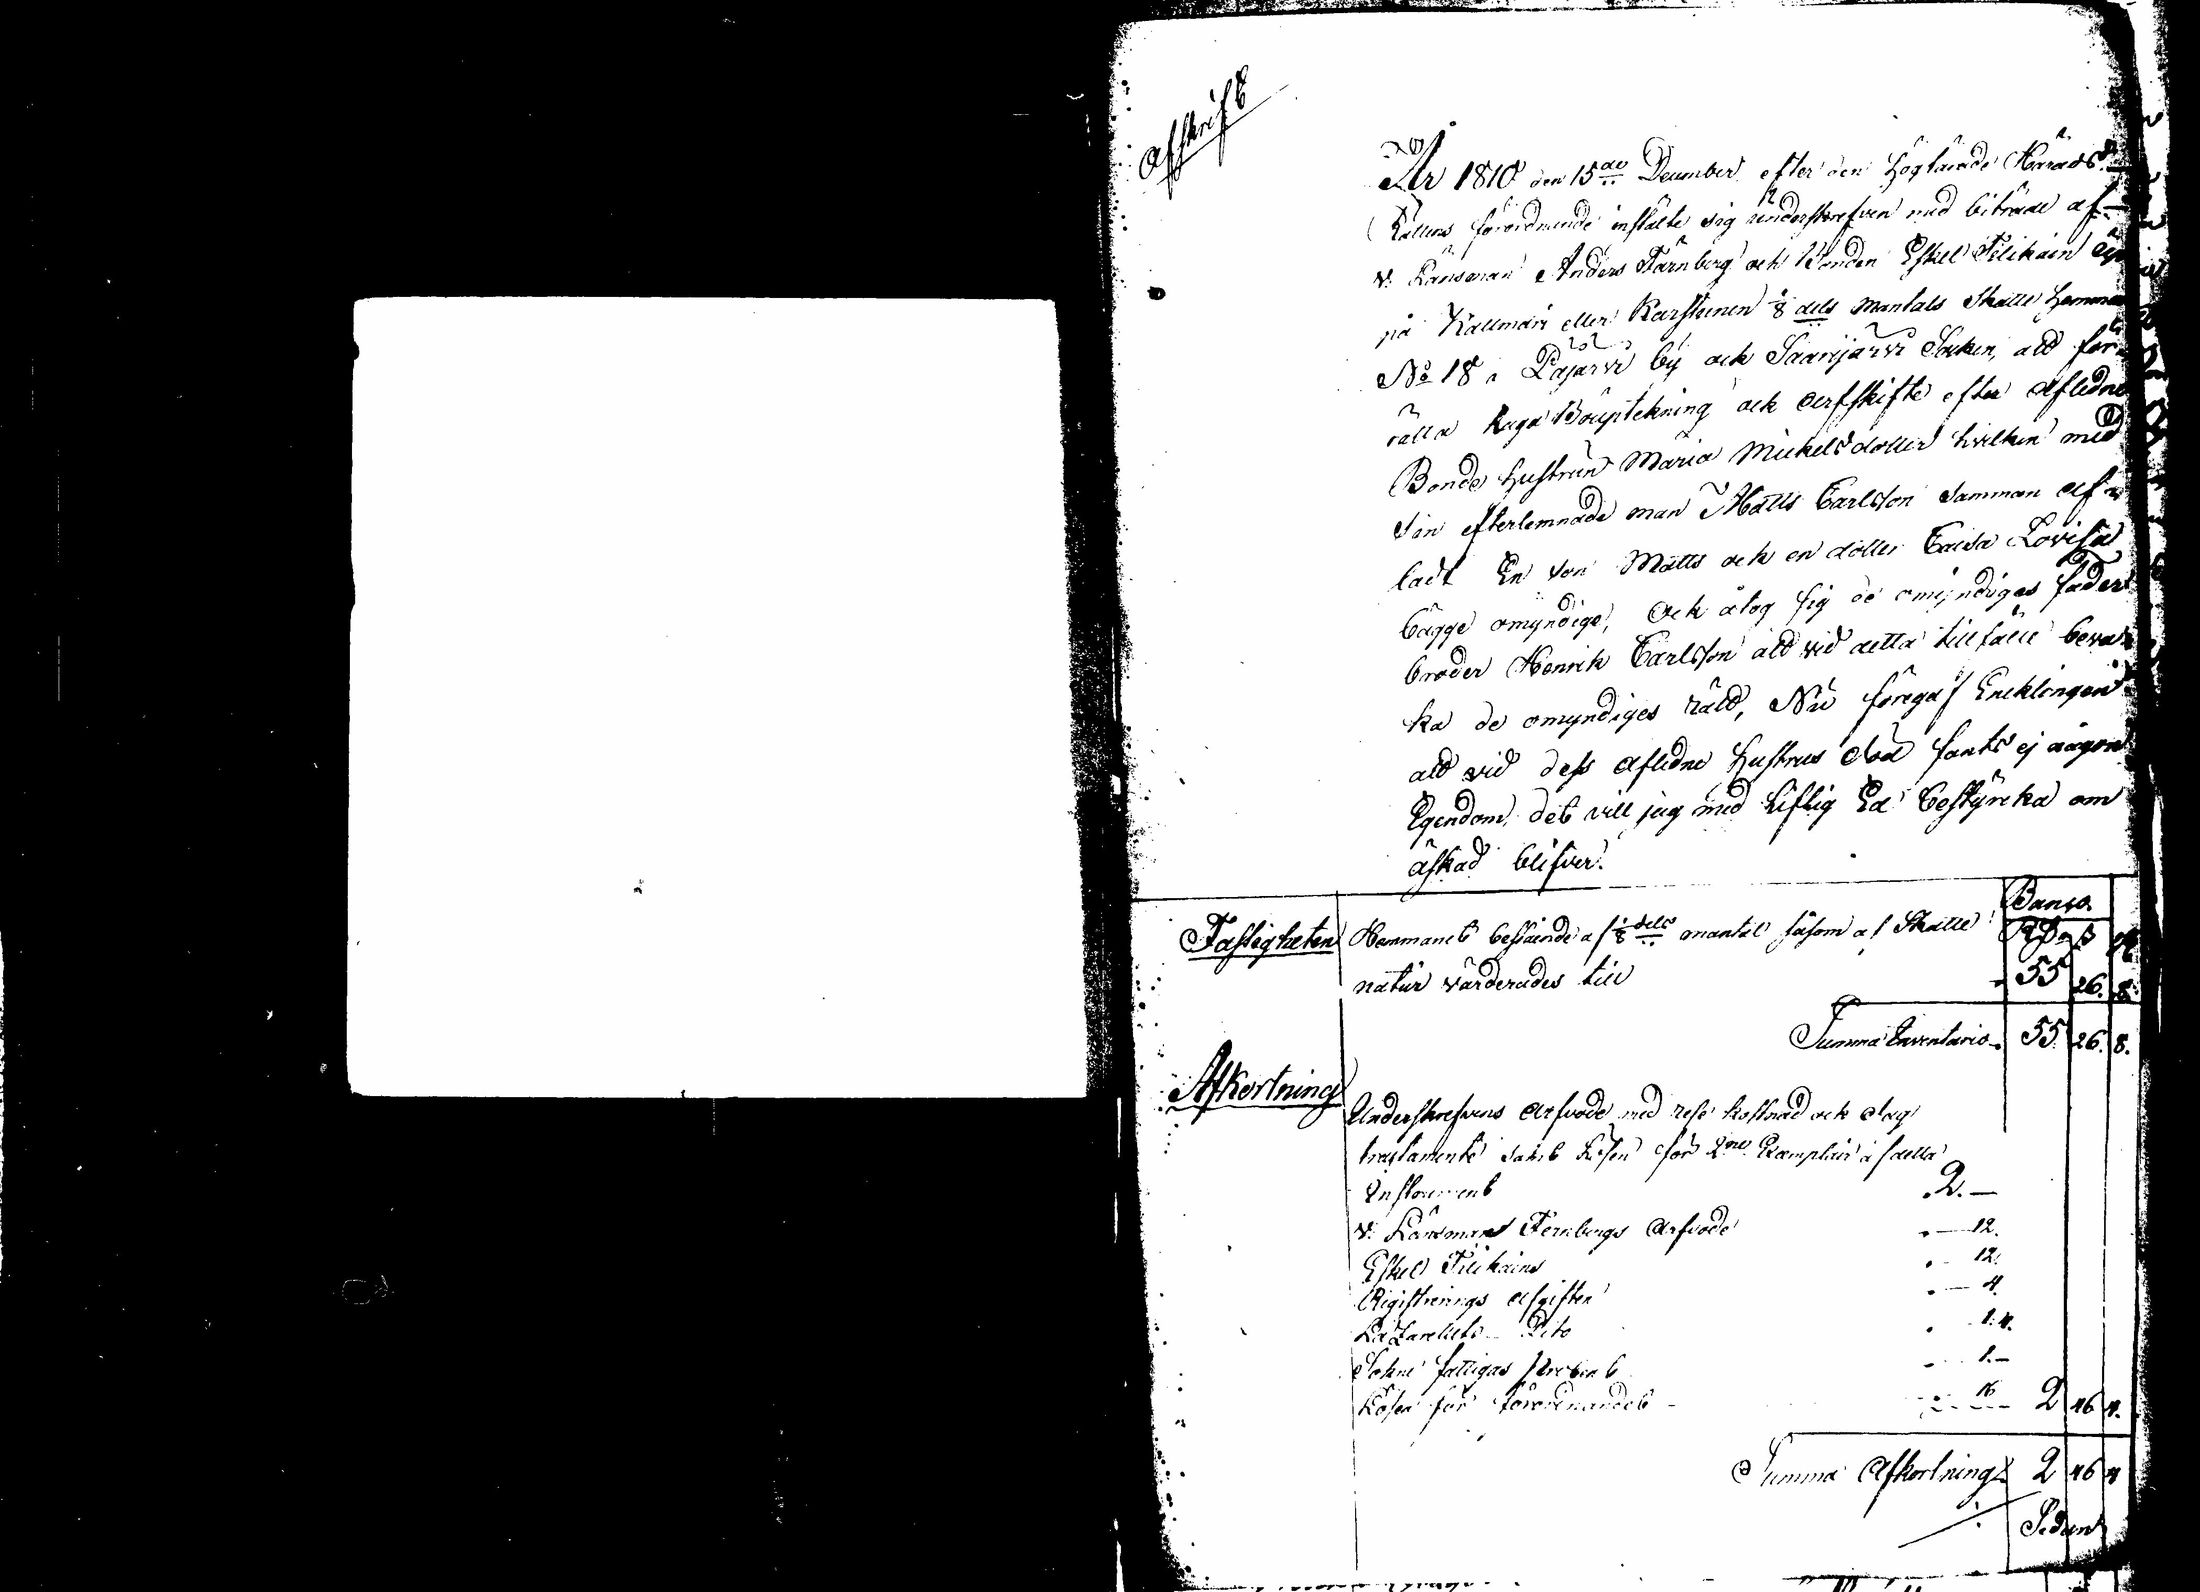 Afskrift
År 1810 den 15de December efter den höglärade Härads
Rättens förordnande instälte sig underskrefven med biträde af
v: Länsman Anders Färnberg och Bonden Eskel Tilikain
på Kallmari eller Karstunen 1/8 dels mantals Skatte Hemman
No 18 i Pajärvi by och Saarijärvi Socken, att för-
rätta laga Bouptekning och arfskifte efter Afledne
Bonde hustrun Maria Mickelsdotter hvilken med
sin efterlemnade man Matts Carlsson samman af-
lat En son Matts och en dotter Caisa Lovisa
bägge omyndige, och åtog sig de omyndiges fader
broder Henrik Carlsson att vid detta tillfälle beva-
ka de omyndiges rätt, Nu föregaf Encklingen
att vid dess afledne hustrus död fants ej någon
Egendom, det vill jag med liflig Ed bestyrcka om
äskad blifver.
Banco.
Fastigheten Hemmanet bestående af 1/8 dels mantal såsom af Skatte Rd ß
natur värderades till 55 26. 8.
Summa Inventario 55. 26. 8.
Afkortning
Underskrefvens Arfvode med rese kostnad och dag
tractamente samt Lösen för 2ne Exemplar af detta
Instrument 2. —
v: Länsman Fernbergs Arfvode — 12.
Eskel Tilikains - 12.
Registrerings afgiften — 4.
Lazaretts Dito 1: 4.
Sokne fattigas procent 1. —
Lösen för förordnandet 16 2 46 4.
Summa Afkortning 2 46 4
Sedan